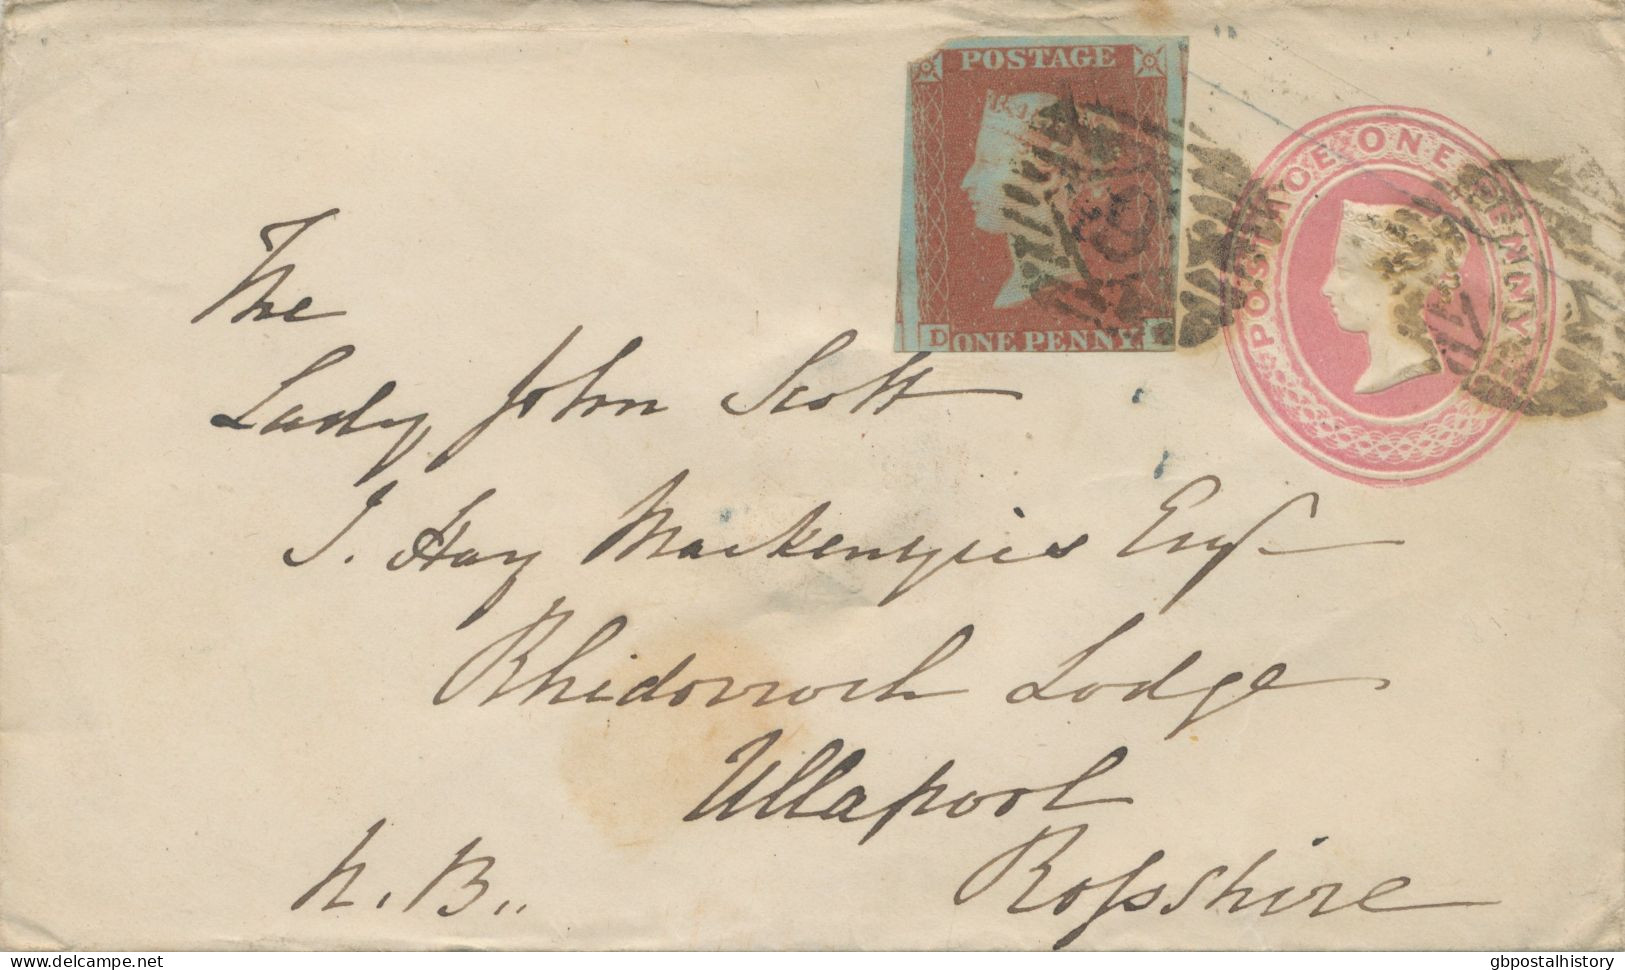 POSTAGE
D ONE PENNY.
POSTAGE ONE PENNY
The
Lady John Scott
J. Hay Mackenzies Esqr
Rhidorroch Lodge
Ullapool
N.B.. Rossshire
www.delcampe.net
gbpostalhistory